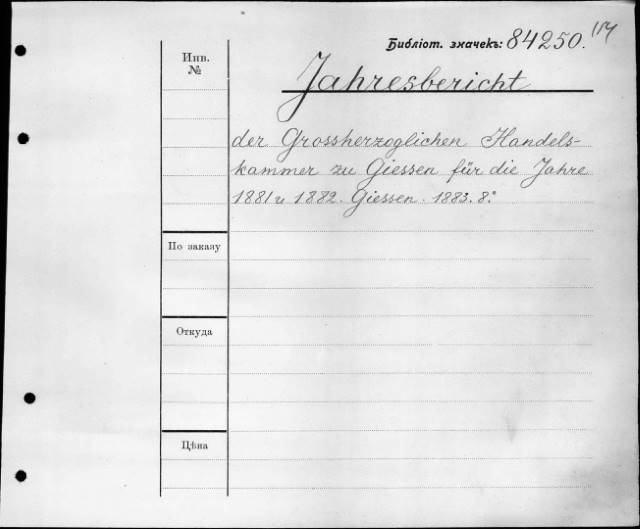 Библіот. значекъ: 84250.
Инв.
№
Jahresbericht
der Grossherzoglichen Handels-
kammer zu Giessen für die Jahre
1881 u 1882. Giessen. 1883. 8.°
По заказу
Откуда
Цѣна